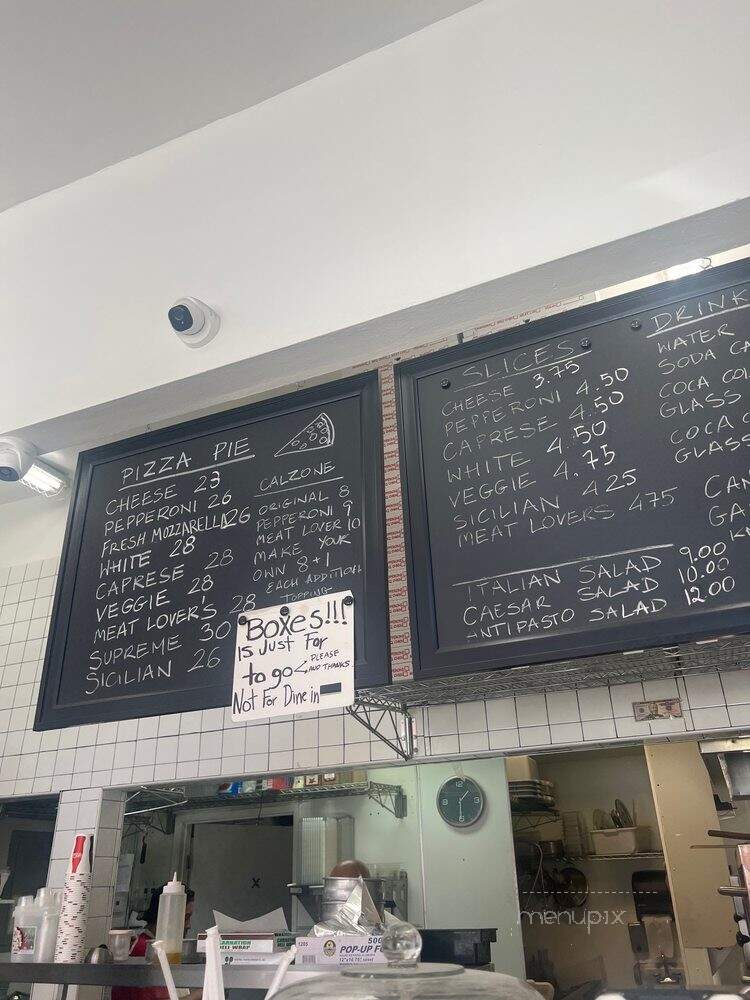 PIZZA PIE
CHEESE 23
PEPPERONI 26
FRESH MOZZARELLA 26
WHITE 28
CAPRESE 28
VEGGIE 28
MEAT LOVER'S 28
SUPREME 30
SICILIAN 26
CALZONE
ORIGINAL 8
PEPPERONI 9
MEAT LOVER 10
MAKE YOUR
OWN 8+1
EACH ADDITION
TOPPING
BOXES!!!
IS JUST FOR
to go < PLEASE
AND THANKS
Not For Dine in
SLICES
CHEESE 3.75
PEPPERONI 4.50
CAPRESE 4.50
WHITE 4.50
VEGGIE 4.75
SICILIAN 4.25
MEAT LOVERS 4.75
ITALIAN SALAD 9.00
CAESAR SALAD 10.00
ANTIPASTO SALAD 12.00
DRINK
WATER
SODA CA
COCA CO
GLASS
COCA C
GLASS
CAN
GA
X
DELI WRAP
500
POP-UP F
menupix